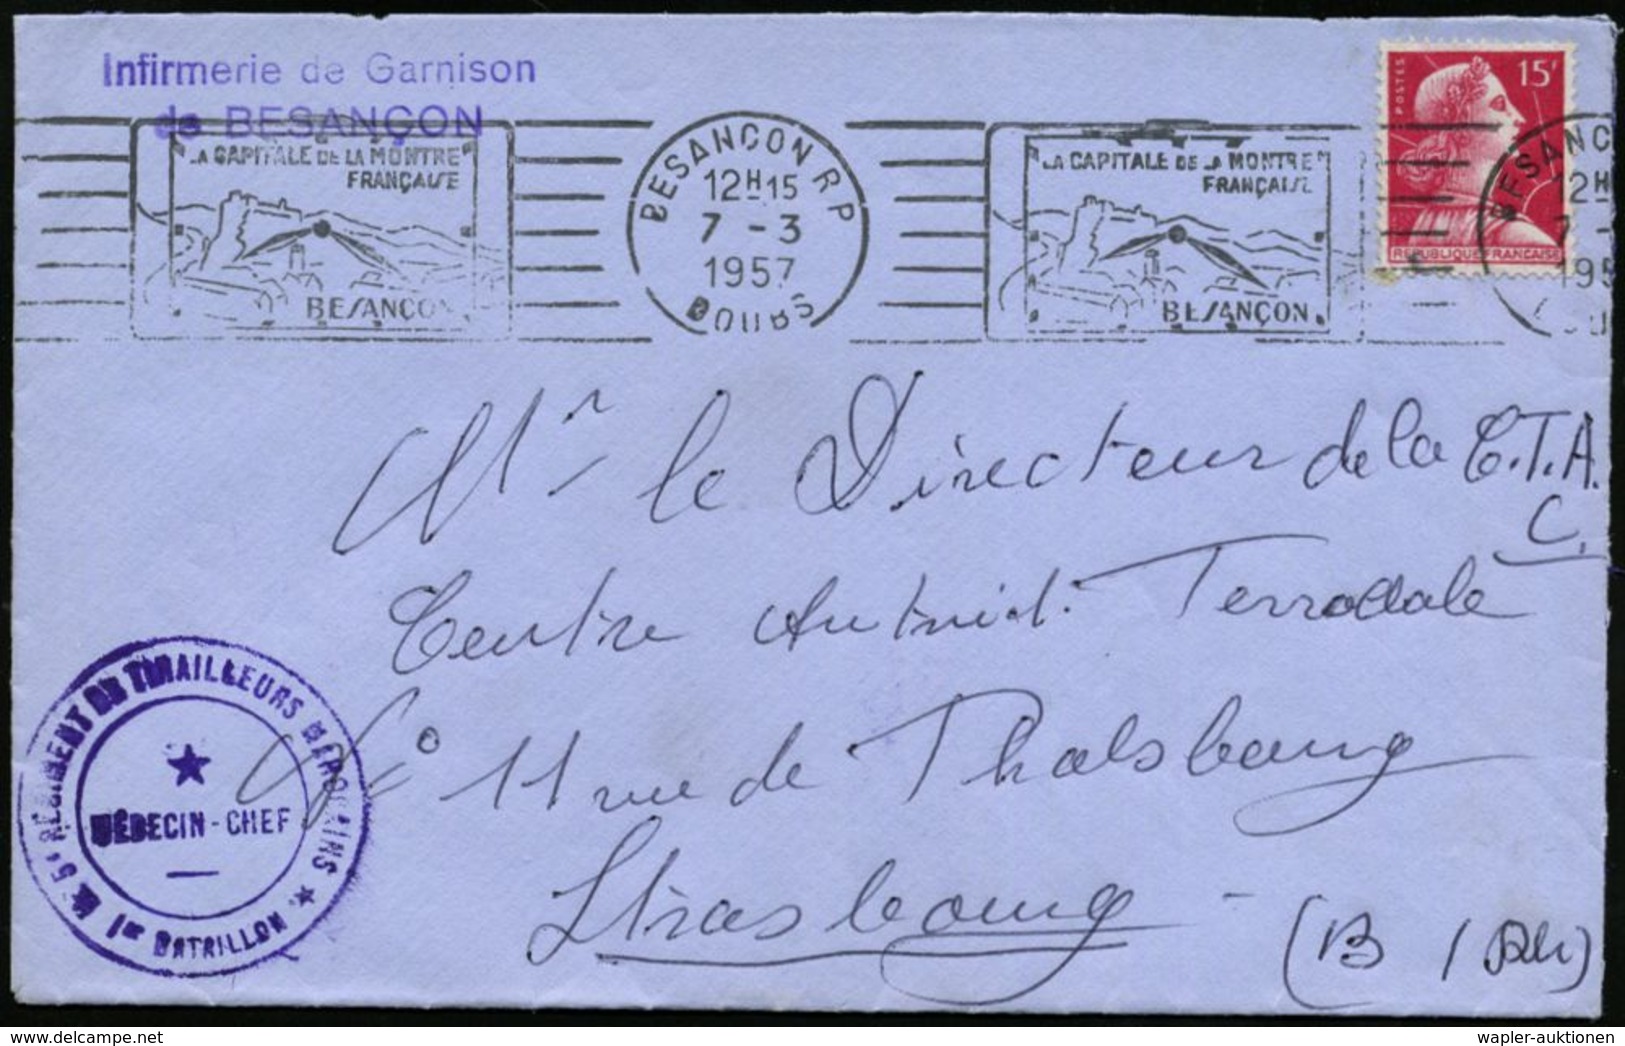 Infirmerie de Garnison
de BESANÇON
LA CAPITALE DE LA MONTRE
FRANÇAISE
BESANÇON
BESANÇON R.P
12H15
7 - 3
1957
DOUBS
"LA CAPITALE DE LA MONTRE"
FRANÇAISE
BESANÇON
POSTES
15F
REPUBLIQUE FRANÇAISE
BESANÇ
12H
7 -
195
Mr le Directeur de la C.T.A.
C.
Centre
11 rue de Phalsbourg
Strasbourg -
(B / Rh)
5e REGIMENT DE TIRAILLEURS MAROCAINS
MÉDECIN-CHEF
1er BATAILLON
delcampe.net
wapler-auktionen